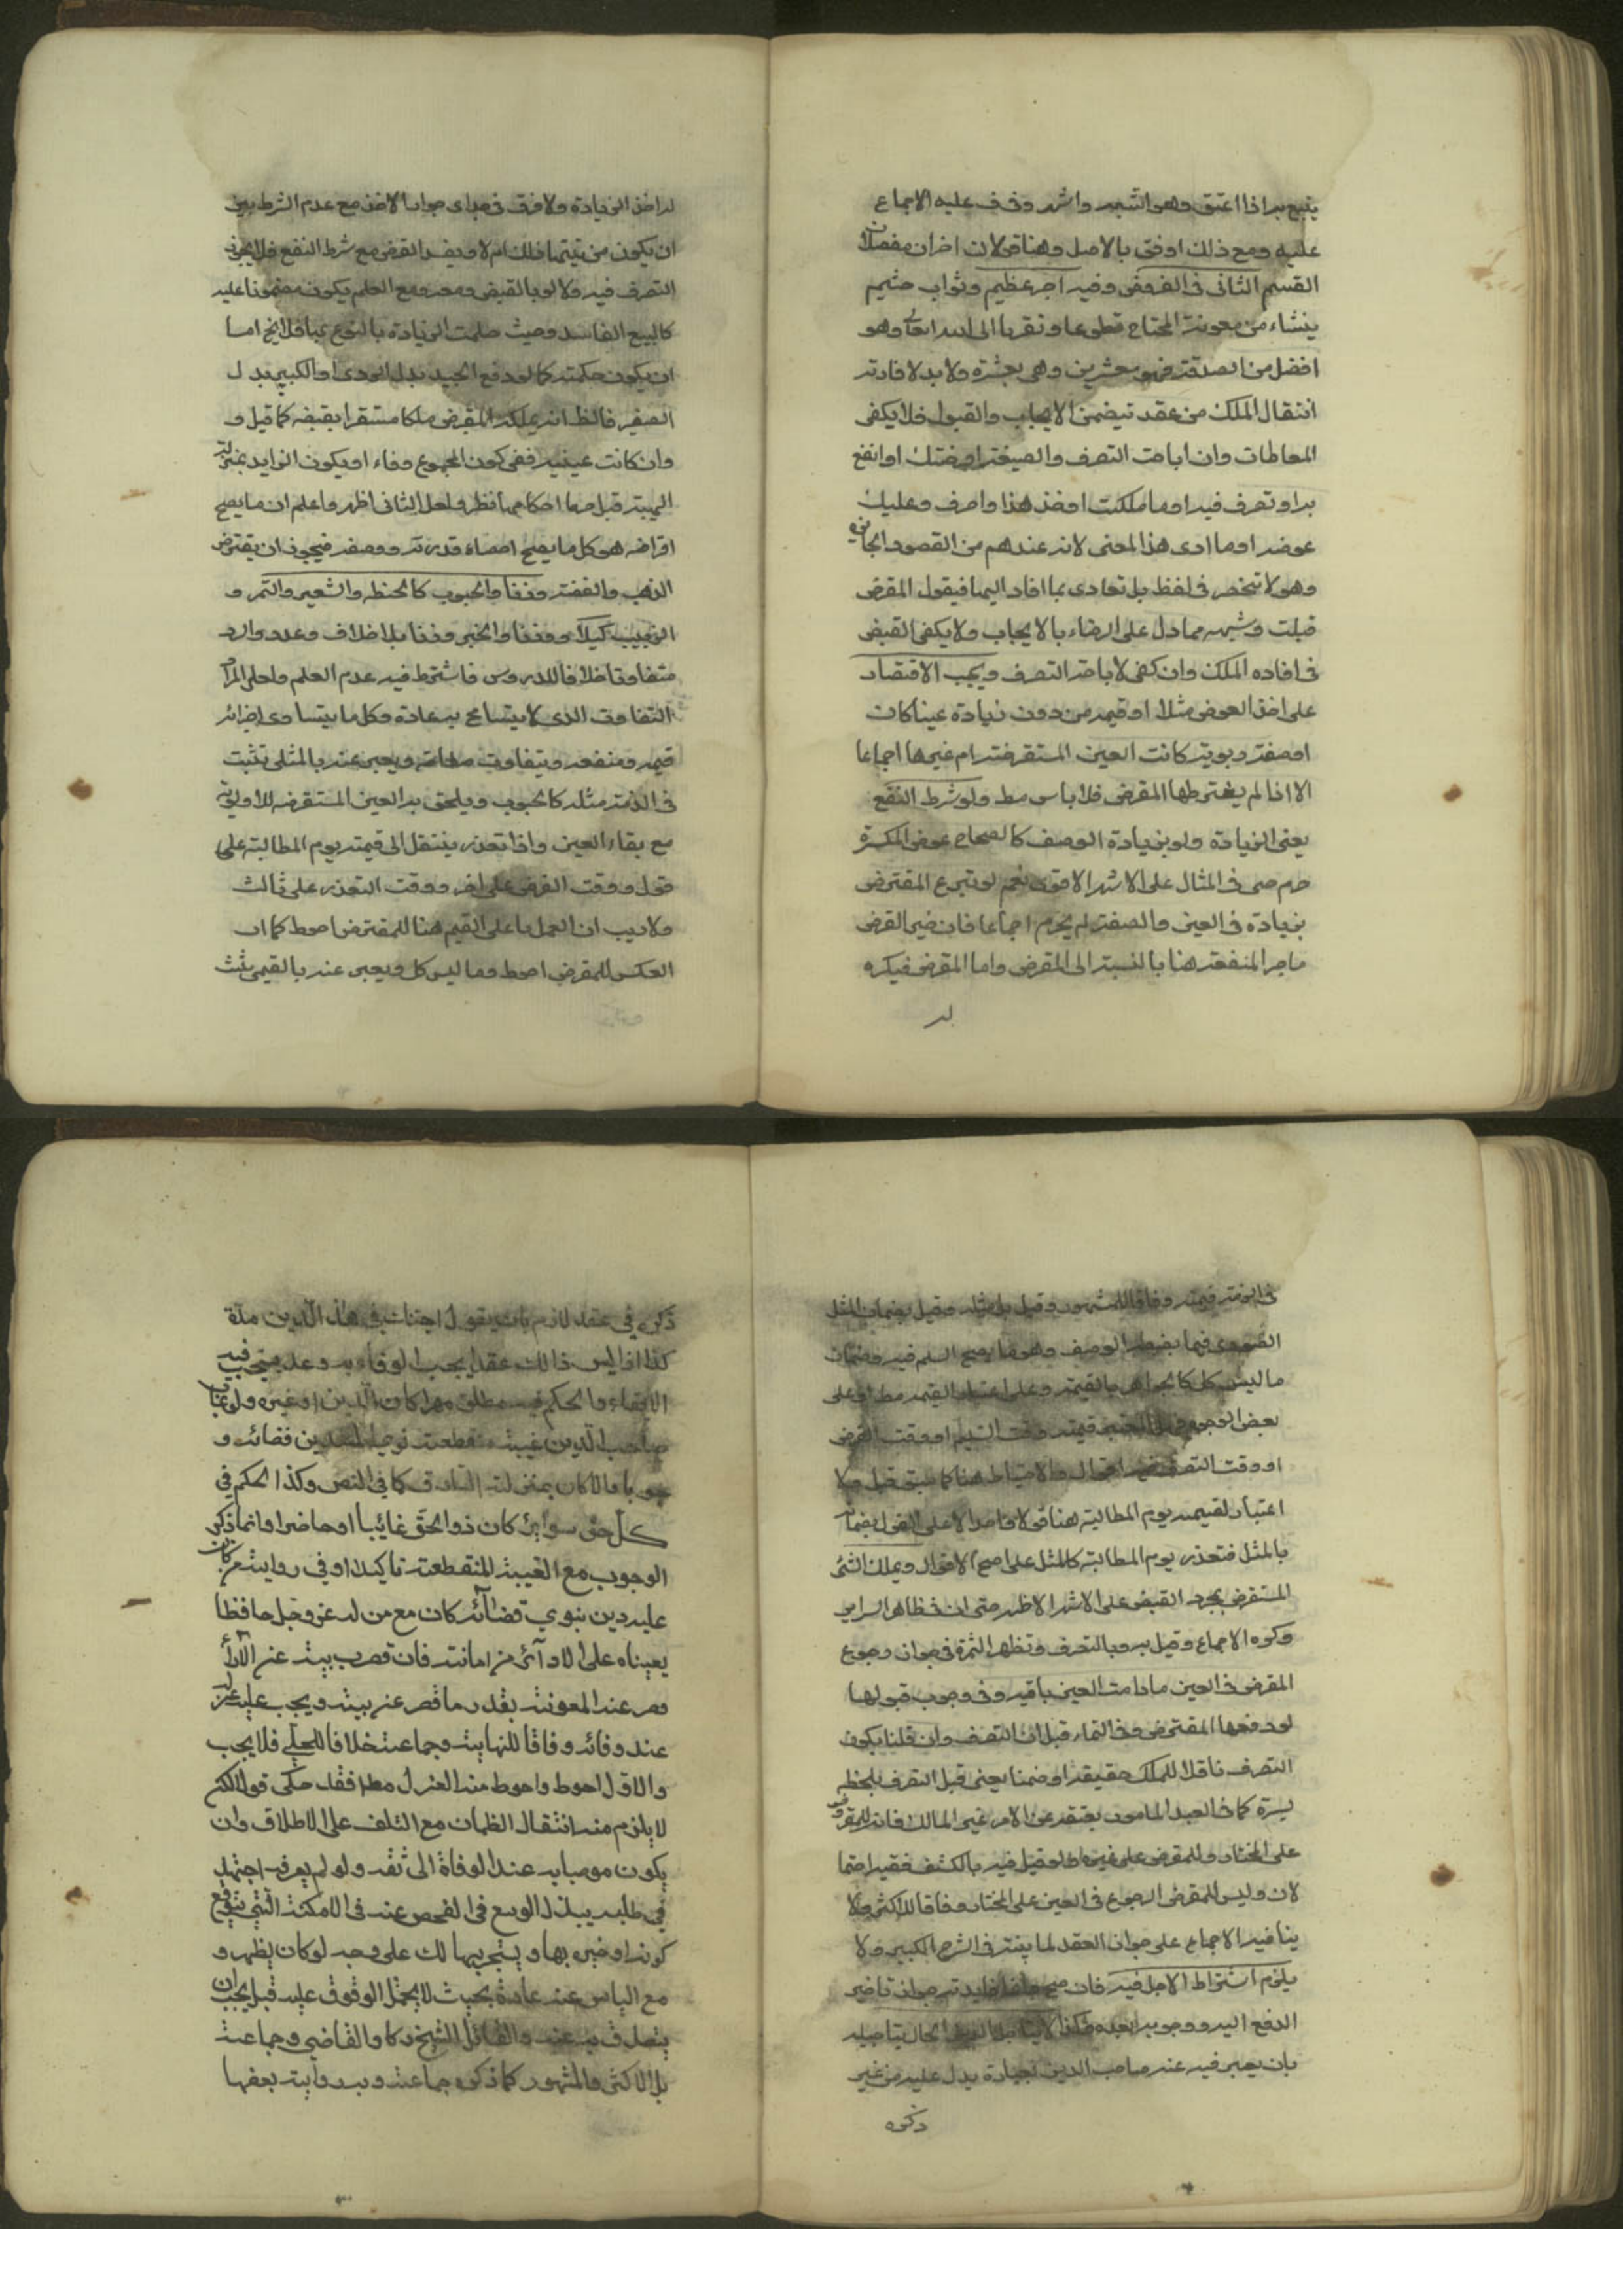 يتبع به اذا اعتق وهو اشبه واشهر وفي ف عليه الاجماع
عليه ومع ذلك اوفق بالاصل وهنا قولان اخران مفصلان
القسم الثاني في القرض وفيه اجر عظيم وثواب جسيم
ينشاء من معونة المحتاج تطوعا وتقربا الى الله تعالى وهو
افضل من الصدقة فهو بعشرين وهي بعشرة ولا بد لافادته
انتقال الملك من عقد تيضمن الايجاب والقبول فلا يكفي
المعاطات وان اباحت التصرف والصيغة اقرضتك او انتفع
به او تصرف فيه او ما ملكت او خذ هذا واصرف وعليك
عوضه او ما ادى هذا المعنى لانه عندهم من العقود الجائزة
وهو لا تنحصر في لفظ بل تعادى بما افاد اليها فيقول المقرض
قبلت وشبهه مما دل على الرضاء بالايجاب ولا يكفي القبض
في افاده الملك وان كفى لاباحة التصرف ويجب الاقتصاد
على اخذ العوض مثلا او قيمه من دون زيادة عينا كان
او صفة ربوية كانت العين المستقرضة ام غيرها اجماعا
الا اذا لم يشترطها المقرض فلا باس مط ولو شرط النفع
يعني الزيادة ولو بزيادة الوصف كالصحاح عوض المكسرة
حرم حتى في المثال على الاشهر الاقوى نعم لو تبرع المقترض
بزيادة في العين والصفة لم يحرم اجماعا فان خير القرض
ما جر المنفعة هنا بالنسبة الى المقرض واما المقرض فيكره
له
له اخذ الزيادة ولا فرق في مبداى جواب الاخذ مع عدم الشرط بين
ان يكون من نيتهما ذلك ام لا ويفسد القرض مع شرط النفع فلا يجوز
التصرف فيه ولا لو بالقبض ومعه ومع العلم يكون مضمونا عليه
كالبيع الفاسد وحيث حلت الزيادة بالتبرع بها فلا يخ اما
ان يكون حكمية كما لو دفع الجيد بدل الردى او الكبير بدل
الصغير فالظ انه يملكه المقرض ملكا مستقرا بقبضه كما قيل و
وان كانت عينية ففي كون المجموع وفاء او يكون الزايد بمنزلة
الهبة قبل معها احكامها نظر ولعل الثاني اظهر واعلم ان ما يصح
اقراضه هو كل ما يصح احصاء قدرته ووصفه فيجوز ان يقترض
الذهب والفضة وزنا والحبوب كالحنطه والشعير والتمر و
الزبيب كيلا ووزنا والخبز وزنا بلا خلاف وعددا وارد
متفاوتا خلافا للدروس فاشترط فيه عدم العلم ولعل المراد
التفاوت الذي لا يتسامح به عادة وكل ما يتساوى اجزائه
قيمه ومنفعه ويتفاوت صفاته ويعبر عنه بالمثلى تثبت
في الذمة مثله كالحبوب ويلحق به العين المستقرضه للاولوية
مع بقاء العين واذا تعذر ينتقل الى قيمته يوم المطالبة على
قول ووقت القرض على اخر ووقت التعذر على ثالث
ولا ريب ان العمل باعلى القيم هنا للمقترض احوط كما ان
العكس للمقرض احوط وما ليس كل ويعبر عنه بالقيمى يثبت
في الذمة قيمته وفاقا للمشهور وقيل بل مثله وقيل بضمان المثل
الصوري فيما يضبط الوصف وهو ما يصح السلم فيه وضمان
ما ليس كل كالجواهر بالقيمة وعلى اعتبار القيمه مط او على
بعض الوجوه قيمته وقت التسليم او وقت القرض
او وقت التصرف اقوال والاحتياط هنا كما سبق قبل ولا
اعتبار لقيمته يوم المطالبة هنا قولا واحدا الا على القول بضمانه
بالمثل فتعذر يوم المطالبة كالمثل على اصح الاقوال ويملك الشئ
المستقرض بجرد القبض على الاشهر الاظهر حتى ان في ظاهر السرائر
وكره الاجماع وقيل به وبالتصرف وتظهر الثمرة في جواز رجوع
المقرض في العين ما دامت العين باقيه وفي وجوب قبولها
لو دفعها المقترض وفي النماء قبل ان التصرف وان قلنا بكون
التصرف ناقلا للملك حقيقه او ضمنا يعني قبل التصرف بلحظه
يسيرة كما في العبد المامور بعتقه عن الامر غير المالك فانه للمقرض
على المختار وللمقرض على غيره ولو قيل فيه بالكشف ففيه احتما
لان وليس للمقرض الرجوع في العين على المختار وفاقا للاكثر ولا
ينافيه الاجماع على جواز العقد لما بينته في الشرح الكبير ولا
يلزم اشتراط الاجل فيه فان صح
الدفع اليه ووجوبه بعده وكذا لا يتاجل الدين الحال بتاجيله
بان يعبر فيه عنه صاحب الدين بعبارة يدل عليه من غير
ذكره
ذكره في عقد لازم بان يقول اجلتك في هذا الدين مدة
كذا اذ ليس ذالك عقدا يجب الوفاء به وعد يستحب فيه
الايفاء والحكم فيه مطلق مهرا كان الدين او غيره ولو غاب
صاحب الدين غيبة منقطعة نوى المستدين قضائه و
جوبا والا كان بمنزلة السارق كما في النص وكذا الحكم في
كل حق سواء كان ذو الحق غائيبا او حاضرا وانما ذكر
الوجوب مع الغيبة المنقطعة تاكيدا وفي رواية من كان
عليه دين ينوي قضائه كان مع من له عز وجل حافظا
يعيناه على الادآئ من امانته فان قصرت بيته عن الاداء
قصر عنه المعونة بقدر ما قصر عنه بيته ويجب عليه عزله
عند وفائه وفاقا للنهاية وجماعة خلافا للحلي فلا يجب
والاول احوط واحوط منه العزل مطا فقد حكى قولا لكنه
لا يلزم منه انتقال الظمان مع التلف على الاطلاق وان
يكون موصيا به عند الوفاة الى ثقة ولو لم يعرفه اجتهد
في طلبه ببذل الوسع في الفحص عنه في الامكنة التي يتوقع
كونه او خبره بها ويستجريها لك على وجه لو كان يظهر و
مع الياس عنه عادة بحيث لا يحتمل الوقوف عليه قيل يجب ان
يتصدق به عنه والقائل الشيخ ره كا والقاضي وجماعة
بل الاكثر والمشهور كما ذكره جماعة وبه رواية بعضها